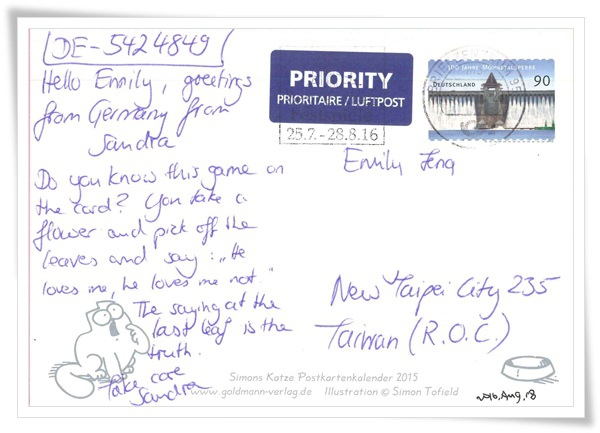 DE-5424849
Hello Emily, greetings
from Germany from
Sandra
Do you know this game on
the card? You take a
flower and pick off the
leaves and say: „He
loves me, he loves me not."
The saying at the
last leaf is the
truth.
Take care
Sandra
PRIORITY
PRIORITAIRE / LUFTPOST
25.7. - 28.8.16
100 JAHRE MÖHNETALSPERRE
DEUTSCHLAND
90
Emily Jeng
New Taipei City 235
Taiwan (R.O.C.)
Simons Katze Postkartenkalender 2015
www.goldmann-verlag.de Illustration © Simon Tofield
2016.Aug.18